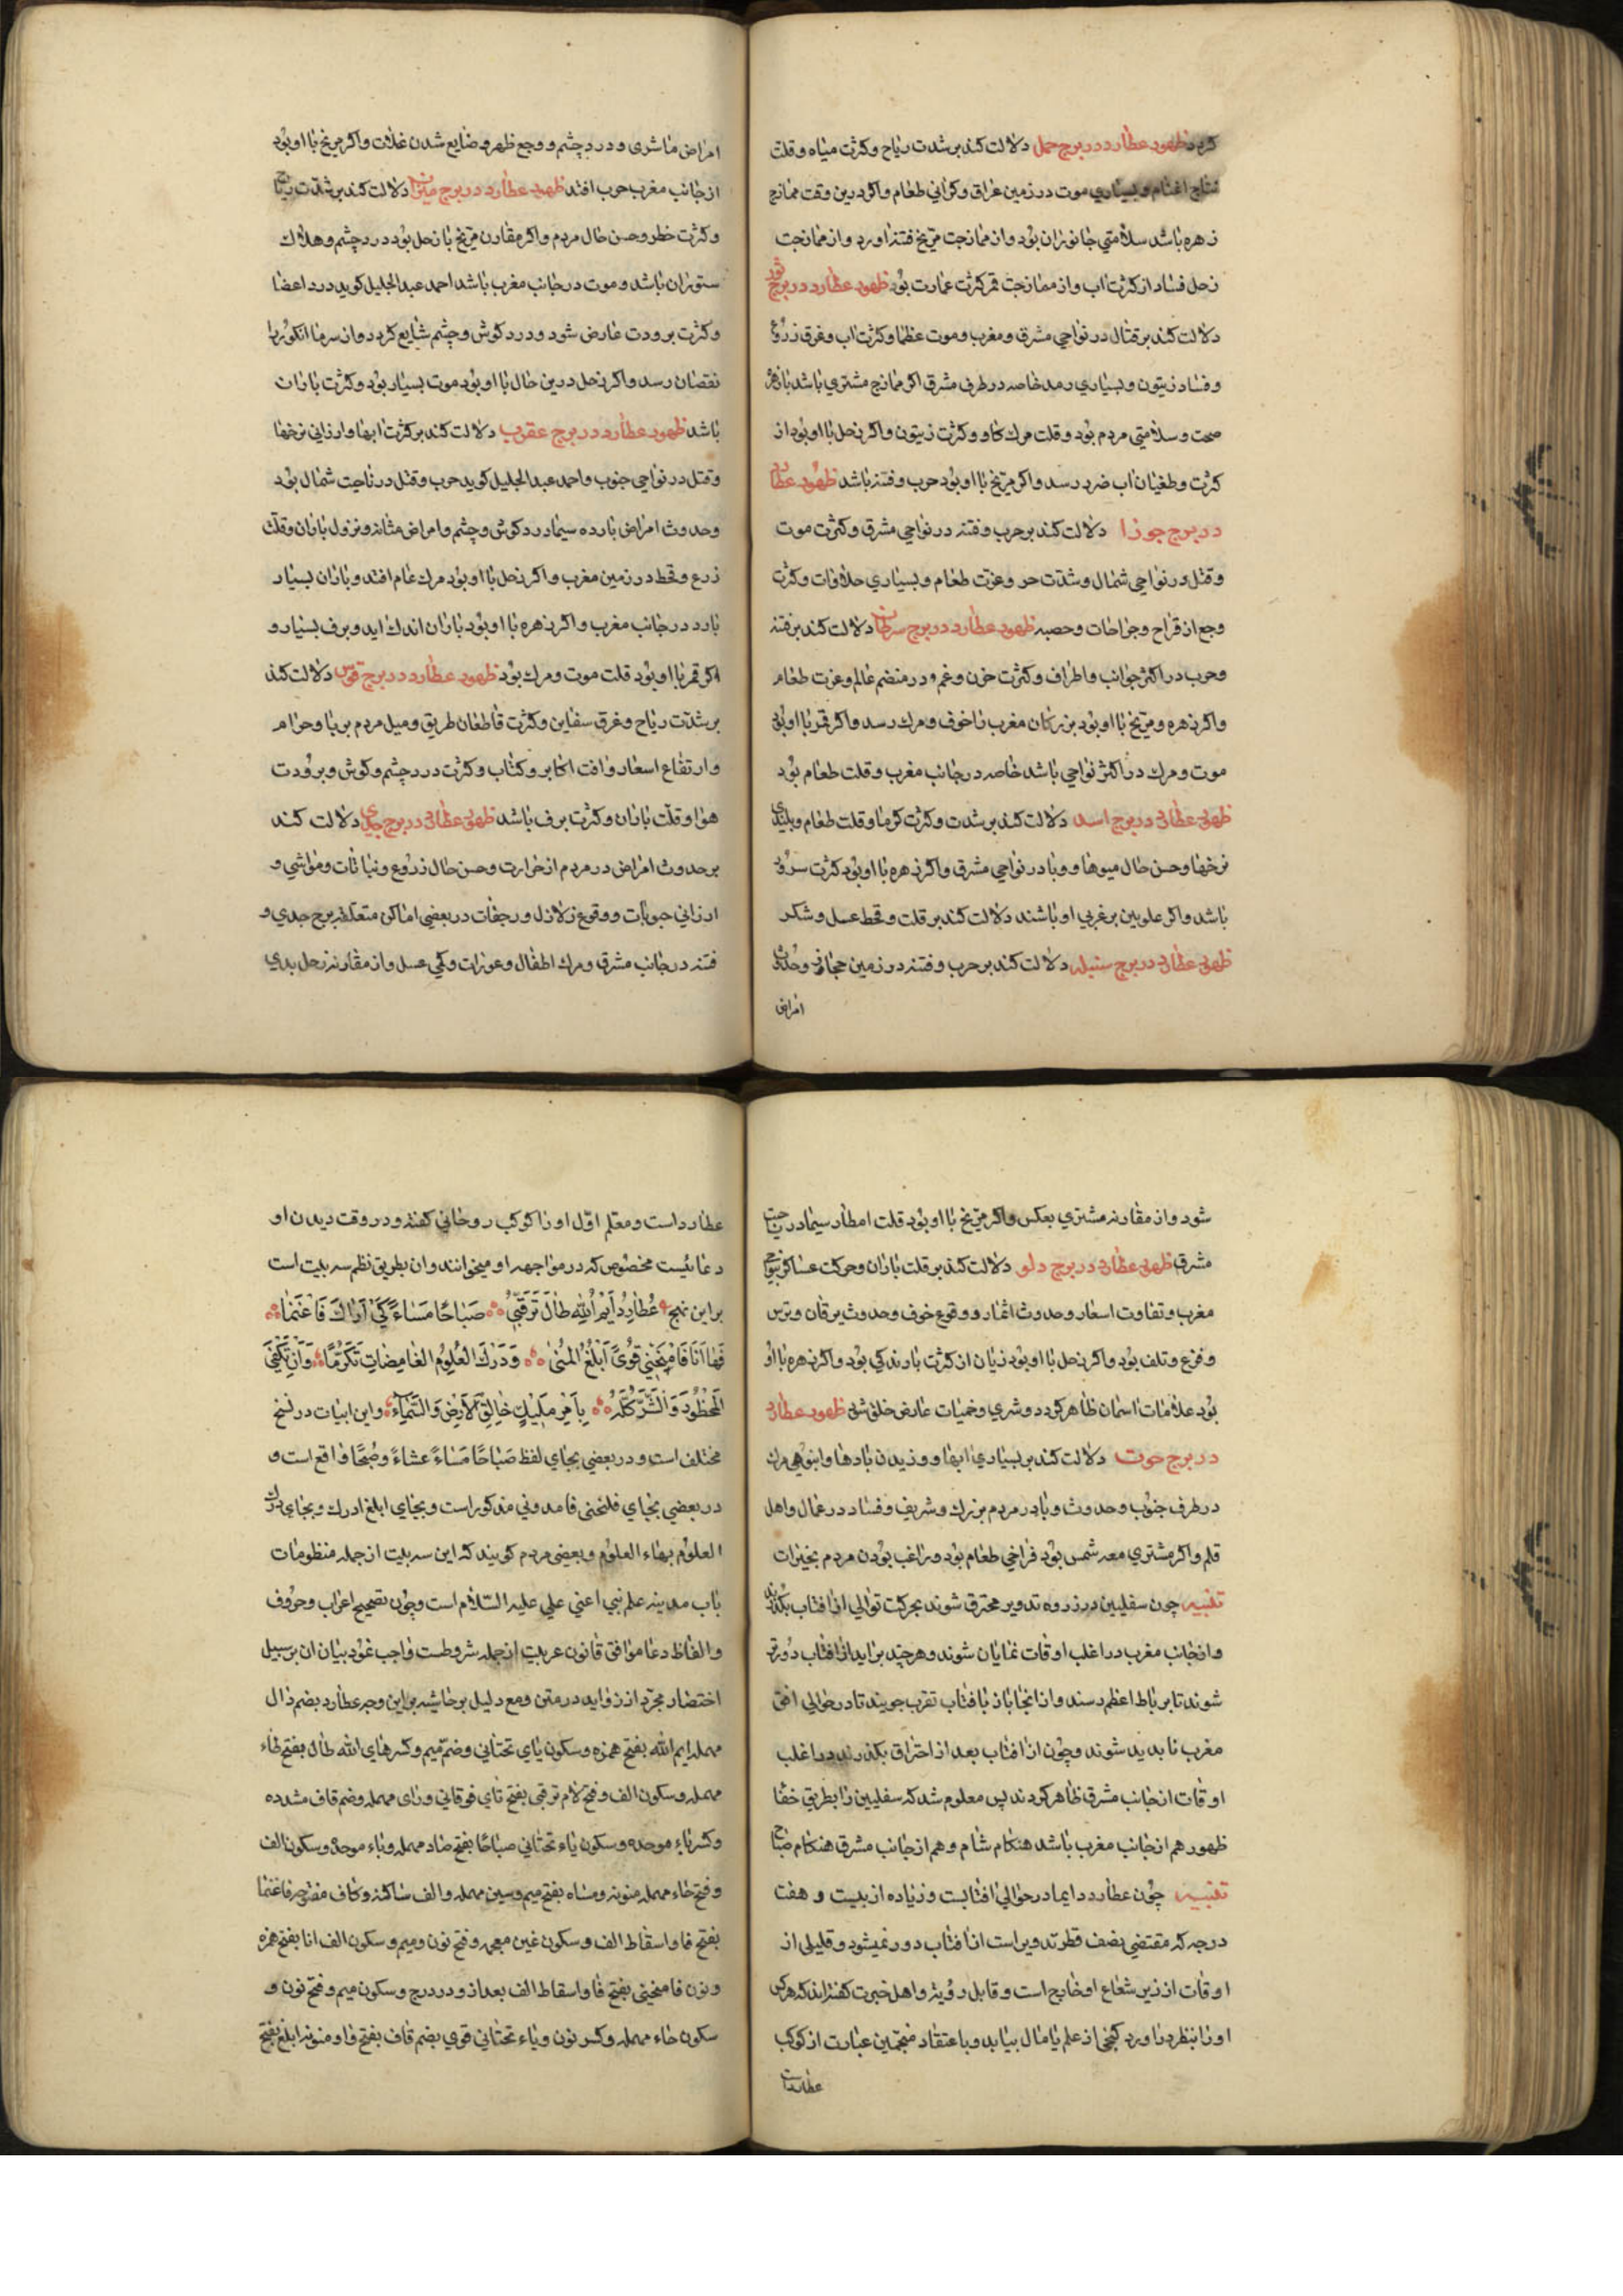 کردد ظهور عطارد در برج حمل دلالت کند بر شدت ریاح وکثرت میاه وقلت
نتاج اغنام وبسیاری موت در زمین عراق وکرانی طعام واکر درین وقت ممازج
زهره باشد سلامتی جانوران بود واز ممازجت مریخ فتنه اورد واز ممازجت
زحل فساد از کثرت اب واز ممازجت قمر کثرت عمارت بود ظهور عطارد در برج ثور
دلالت کند بر قتال در نواحی مشرق ومغرب وموت عظما وکثرت اب وغرق زروع
وفساد زیتون وبسیاری رمد خاصه در طرف مشرق اکر ممازج مشتری باشد یا زهره
صحت وسلامتی مردم بود وقلت مرك کاو وکثرت زیتون واکر زحل با او بود از
کثرت وطغیان اب ضرر رسد واکر مریخ با او بود حرب وفتنه باشد ظهور عطارد
در برج جوزا دلالت کند بر حرب وفتنه در نواحی مشرق وکثرت موت
وقتل در نواحی شمال وشدت حر وعزت طعام وبسیاری حلاوات وکثرت
وجع از قراح وجراحات وحصبه ظهور عطارد در برج سرطان دلالت کند بر فتنه
وحرب در اکثر جوانب واطراف وکثرت حزن وغم ودر منضم عالم وعزت طعام
واکر زهره ومریخ با او بود بزرکان مغرب را خوف ومرك رسد واکر قمر با او بود
موت ومرك در اکثر نواحی باشد خاصه در جانب مغرب وقلت طعام بود
ظهور عطارد در برج اسد دلالت کند بر شدت وکثرت کرما وقلت طعام وبلندی
نرخها وحسن حال میوها ووبا در نواحی مشرق واکر زهره با او بود کثرت سرور
باشد واکر علویین بر غربی او باشند دلالت کند بر قلت وقحط عسل وشکر
ظهور عطارد در برج سنبله دلالت کند بر حرب وفتنه در زمین حجاز وحدوث
امراض
امراض ماشری ودرد چشم ووجع ظهر وضایع شدن غلات واکر مریخ با او بود
از جانب مغرب حرب افتد ظهور عطارد در برج میزان دلالت کند بر شدت ریاح
وکثرت خطر وحسن حال مردم واکر مقارن مریخ یا زحل بود درد چشم وهلاك
ستوران باشد وموت در جانب مغرب باشد احمد عبد الجلیل کوید درد اعضا
وکثرت برودت عارض شود ودرد کوش وچشم شایع کردد واز سرما انکور را
نقصان رسد واکر زحل درین حال با او بود موت بسیار بود وکثرت باران
باشد ظهور عطارد در برج عقرب دلالت کند بر کثرت ابها وارزانی نرخها
وقتل در نواحی جنوب واحمد عبد الجلیل کوید حرب وقتل در ناحیت شمال بود
وحدوث امراض بارده سیما درد کوش وچشم وامراض مثانه ونزول باران وقلت
زرع وقحط در زمین مغرب واکر زحل با او بود مرك عام افتد وباران بسیار
بارد در جانب مغرب واکر زهره با او بود باران اندك اید وبرف بسیار و
اکر قمر با او بود قلت موت ومرك بود ظهور عطارد در برج قوس دلالت کند
بر شدت ریاح وغرق سفاین وکثرت قاطعان طریق ومیل مردم بربا وحرام
وارتفاع اسعار وافت اکابر وکتاب وکثرت درد چشم وکوش وبرودت
هوا وقلت باران وکثرت برف باشد ظهور عطارد در برج جدی دلالت کند
بر حدوث امراض در مردم از حرارت وحسن حال زروع ونباتات ومواشی و
ارزانی حبوبات ووقوع زلازل ورجفات در بعضی اماکن متعلقه ببرج جدی و
فتنه در جانب مشرق ومرك اطفال وعورات وکمی عسل واز مقارنه زحل بدی
شود واز مقارنه مشتری بعکس واکر مریخ با او بود قلت امطار سیما در ناحیت
مشرق ظهور عطارد در برج دلو دلالت کند بر قلت باران وحرکت عساکر بنواحی
مغرب وتفاوت اسعار وحدوث اثمار ووقوع خوف وحدوث یرقان وترس
وفزع وتلف بود واکر زحل با او بود زیان از کثرت بارندکی بود واکر زهره با او
بود علامات اسمان ظاهر کردد وشری وخمیات عارض خلق شود ظهور عطارد
در برج حوت دلالت کند بر بسیاری ابها ووزیدن بادها وانبوهی مرك
در طرف جنوب وحدوث وبا در مردم بزرك وشریف وفساد در عمال واهل
قلم واکر مشتری معه شمس بود فراخی طعام بود وراغب بودن مردم بخیرات
تنبیه چون سفلیین در ذروه تدویر محترق شوند بحرکت توالی از افتاب بکذرند
واز جانب مغرب در اغلب اوقات نمایان شوند وهر چند براید از افتاب دورتر
شوند تا برباط اعظم رسند واز انجا باز بافتاب تقرب جویند تا در حوالی افق
مغرب نا بدید شوند وچون از افتاب بعد از احتراق بکذرند در اغلب
اوقات از جانب مشرق ظاهر کردند پس معلوم شد که سفلیین را بطریق خفا
ظهور هم از جانب مغرب باشد هنکام شام وهم از جانب مشرق هنکام صباح
تنبیه چون عطارد دایما در حوالی افتابست وزیاده از بیست و هفت
درجه که مقتضی نصف قطر تدویر است از افتاب دور نمیشود وقلیلی از
اوقات از زیر شعاع او خارج است وقابل رؤیة واهل خبرت کفته اند که هر که
او را بنظر دراورد کنجی از علم یا مال بیابد وباعتقاد منجمین عبارت از کوکب
عطاردست
عطارد است ومعلم اول او را کوکب روحانی کفته ودر وقت دیدن او
دعائیست مخصوص که در مواجهه او میخوانند وان بطریق نظم سه بیت است
بر این نهج عُطارِدُ اَیْمُ اللهِ طالَ تَرَقُّبِی صَبَاحًا مَسَاءً کَیْ اَرَاكَ فَاَغْنَمَا
فَهَا اَنَا فَامْنَحْنِی قُوًی اَبْلُغُ المُنیٰ وَدَرْكَ العُلُوُمِ الغامِضَاتِ تَکَرُّمًا وَاَنْ تَکْفِنِی
المَحْظُورَ وَالشَّرَّ کُلَّهُ بِاَمْرِ مَلِیْكٍ خَالِقِ الاَرْضِ وَالسَّمَاء واین ابیات در نسخ
مختلف است ودر بعضی بجای لفظ صَبَاحًا مَسَاءً عشاءً وصُبْحًا واقع است و
در بعضی بجای فامنحنی فامددنی مذکور است وبجای ابلغ ادرك وبجای درك
العلوم بهاء العلوم وبعضی مردم کویند که این سه بیت از جمله منظومات
باب مدینه علم نبی اعنی علی علیه السّلام است وچون تصحیح اعراب وحروف
والفاظ دعا موافق قانون عربیت از جمله شروطست واجب نمود بیان ان بر سبیل
اختصار مجرّد از زواید در متن ومع دلیل بر حاشیه بر این وجه عطارد بضم دال
مهمله ایم الله بفتح همزه وسکون یای تحتانی وضم میم وکسر های الله طال بفتح طاء
مهمله وسکون الف وفتح لام ترقبی بفتح تای فوقانی ورای مهمله وضم قاف مشدده
وکسر باء موحده وسکون یاء تحتانی صباحًا بفتح صاد مهمله وباء موحدة وسکون الف
وفتح حاء مهمله منونه ومساء بفتح میم وسین مهمله والف ساکنه وکاف مفتوحه فاغنما
بفتح فا واسقاط الف وسکون غین معجمه وفتح نون ومیم وسکون الف انا بفتح همزه
ونون فامنحنی بفتح فا واسقاط الف بعد از و در درج وسکون میم وفتح نون و
سکون حاء مهمله وکسر نون ویاء تحتانی قوی بضم قاف بفتح واو منونه ابلغ بفتح